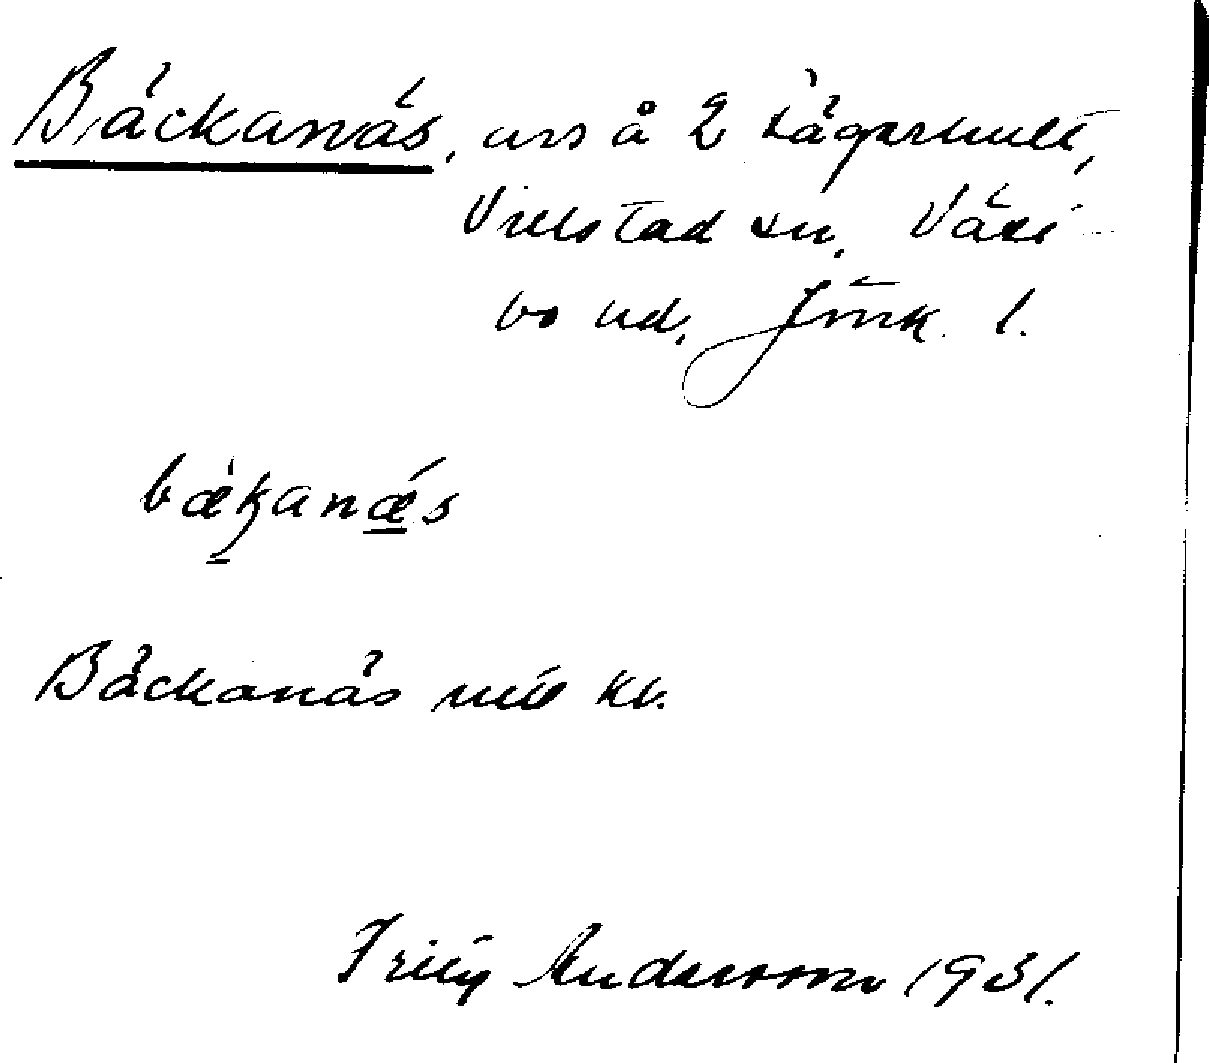 Bäckanäs, urs å 2 Lägerhult,
Villstad sn, Väst-
bo hd, Jönk. l.
bækanæ´s
Bäckanäs uél kr.
Fritz Andersson 1931.